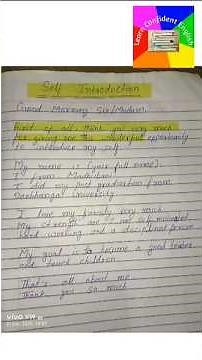 Learn Confident English
Self Introduction
Good Morning Sir/Madam.
First of all, thank you very much
for giving me this wonderful opportunity
to introduce my self.
My name is (your full name).
I from Madhubani
I did my post graduation from
Darbhanga University
I love my family very much.
My strength are I'm self motivated
hard working and a disciplined person
My goal is to become a good teacher
and children
That's all about me
Thank you so much